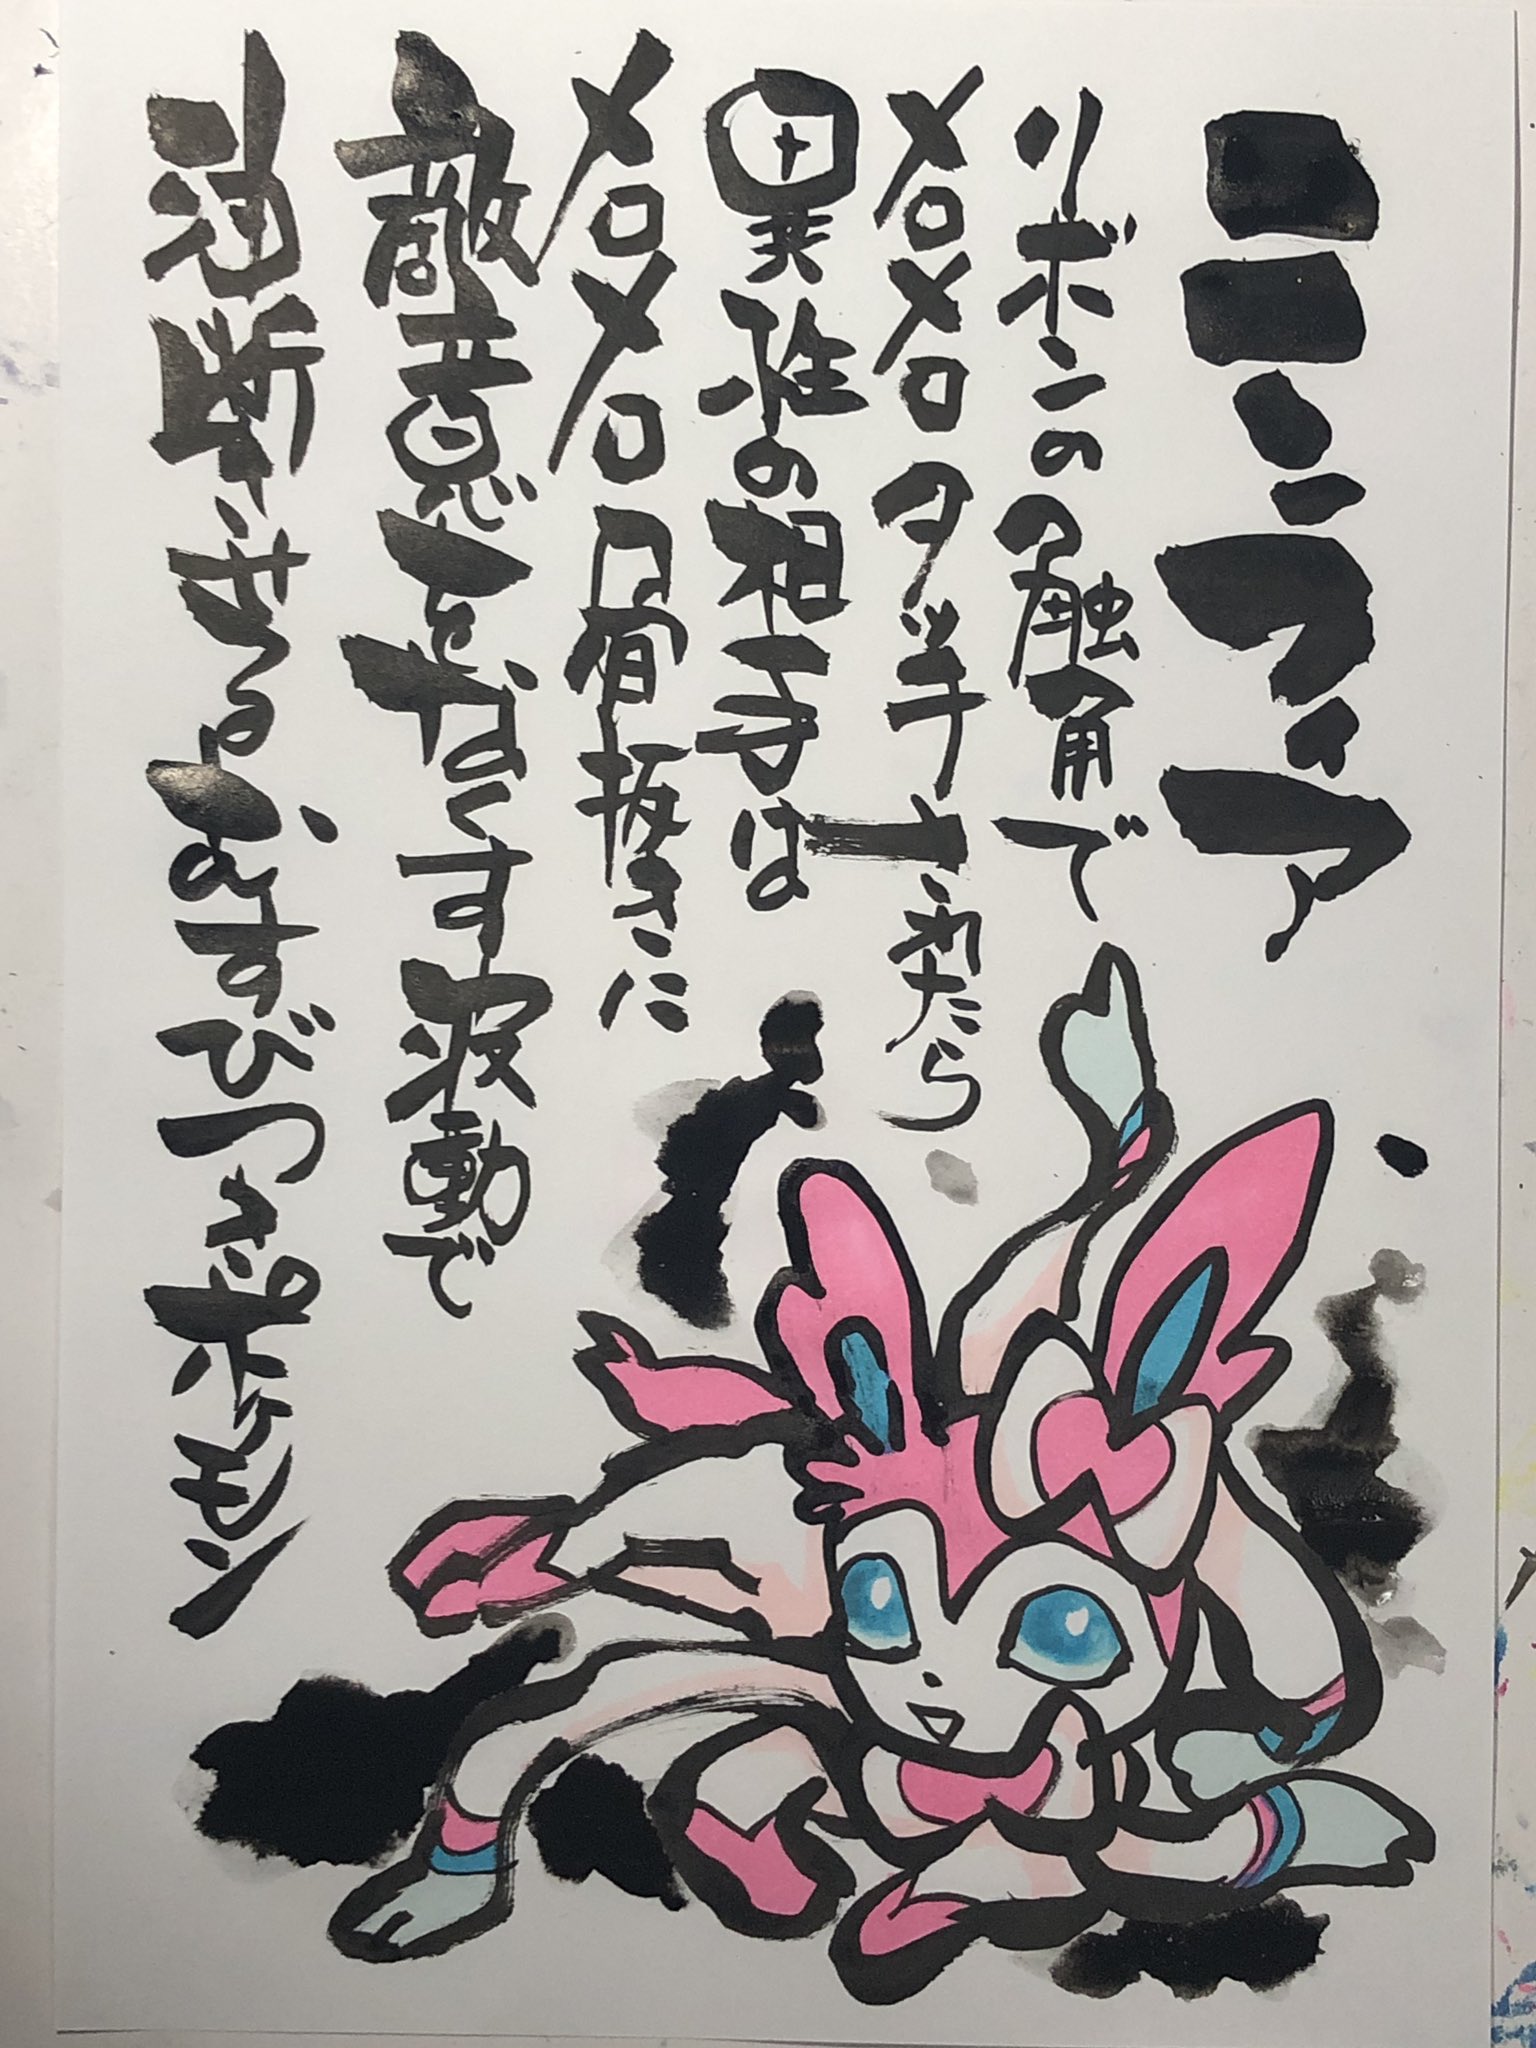 ニンフィア
リボンの触角で
メロメロタッチされたら
異性の相手は
メロメロ骨抜きに
敵意をなくす波動で
油断させるむすびつきポケモン